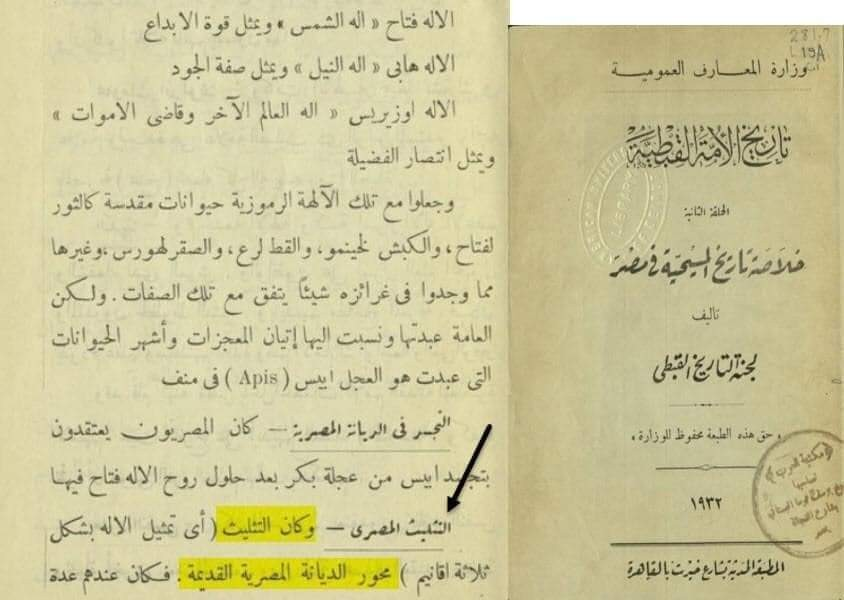 الاله فتاح « اله الشمس » ويمثل قوة الابداع
الاله هابى « اله النيل » ويمثل صفة الجود
الاله اوزيريس « اله العالم الآخر وقاضى الاموات »
ويمثل انتصار الفضيلة
وجعلوا مع تلك الآلهة الرموزية حيوانات مقدسة كالثور
لفتاح، والكبش لخينمو، والقط لرع، والصقر لهورس، وغيرها
مما وجدوا فى غرائزه شيئاً يتفق مع تلك الصفات. ولكن
العامة عبدتها ونسبت اليها إتيان المعجزات وأشهر الحيوانات
التى عبدت هو العجل ابيس (Apis) فى منف
التجسد فى الديانة المصرية — كان المصريون يعتقدون
بتجسد ابيس من عجلة بكر بعد حلول روح الاله فتاح فيها
التثليث المصرى — وكان التثليث (أى تمثيل الاله بشكل
ثلاثة اقانيم) محور الديانة المصرية القديمة. فكان عندهم عدة
281.7
وزارة المعارف العمومية
تاريخ الأمة القبطية
الحلقة الثانية
خلاصة تاريخ المسيحية فى مصر
تأليف
لجنة التاريخ القبطى
« حق هذه الطبعة محفوظ للوزارة »
١٩٣٢
المطبعة
بشارع خيرت بالقاهرة